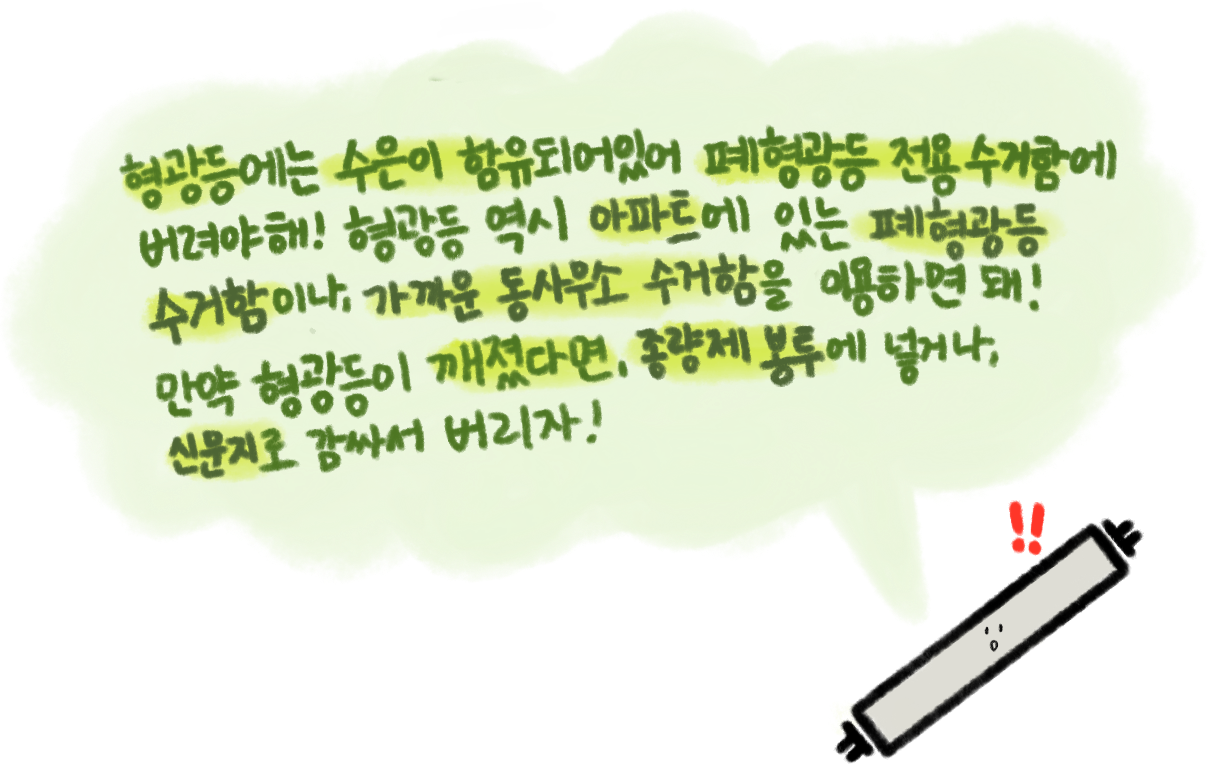 형광등에는 수은이 함유되어있어 폐형광등 전용 수거함에
버려야해! 형광등 역시 아파트에 있는 폐형광등
수거함이나, 가까운 동사무소 수거함을 이용하면 돼!
만약 형광등이 깨졌다면, 종량제 봉투에 넣거나,
신문지로 감싸서 버리자!
!!